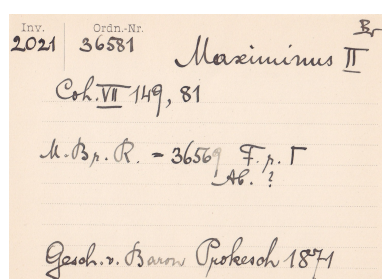 Inv. Ordn.-Nr. Br
2021 36581
Maximinus II
Coh. VII 149, 81
M. Br. R. = 36569 F. p. Γ
Av. ?
Gesch. v. Baron Prokesch 1871